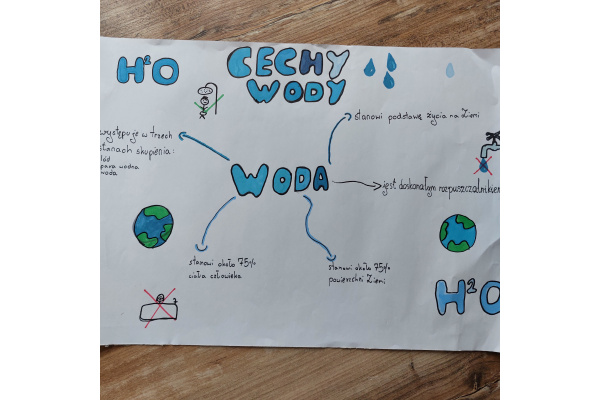 H²O
CECHY
WODY
stanowi podstawę życia na Ziemi
występuje w trzech
stanach skupienia:
lód
para wodna
woda
WODA
jest doskonałym rozpuszczalnikiem
stanowi około 75%
ciała człowieka
stanowi około 75%
powierzchni Ziemi
H²O